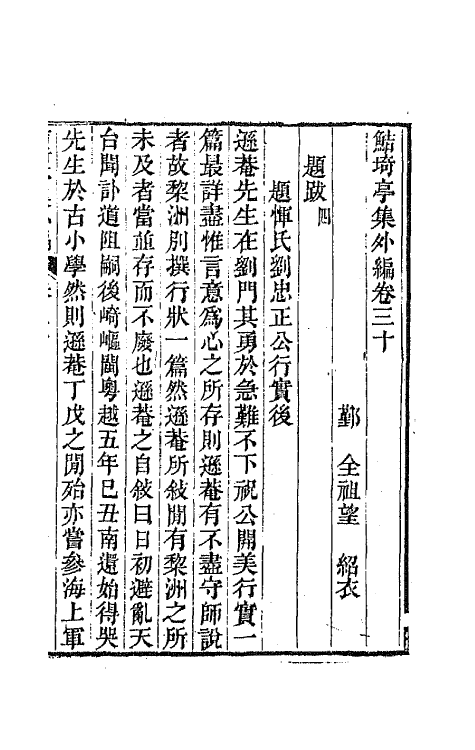 鮚埼亭集外編卷三十
鄞　全祖望　紹衣
題跋四
題惲氏劉忠正公行實後
遜菴先生在劉門其勇於急難不下祝公開美行實一
篇最詳盡惟言意爲心之所存則遜菴有不盡守師說
者故黎洲別撰行狀一篇然遜菴所敍間有黎洲之所
未及者當並存而不廢也遜菴之自敍曰日初避亂天
台聞訃道阻嗣後崎嶇閩粵越五年已丑南還始得哭
先生於古小學然則遜菴丁戊之閒殆亦嘗參海上軍